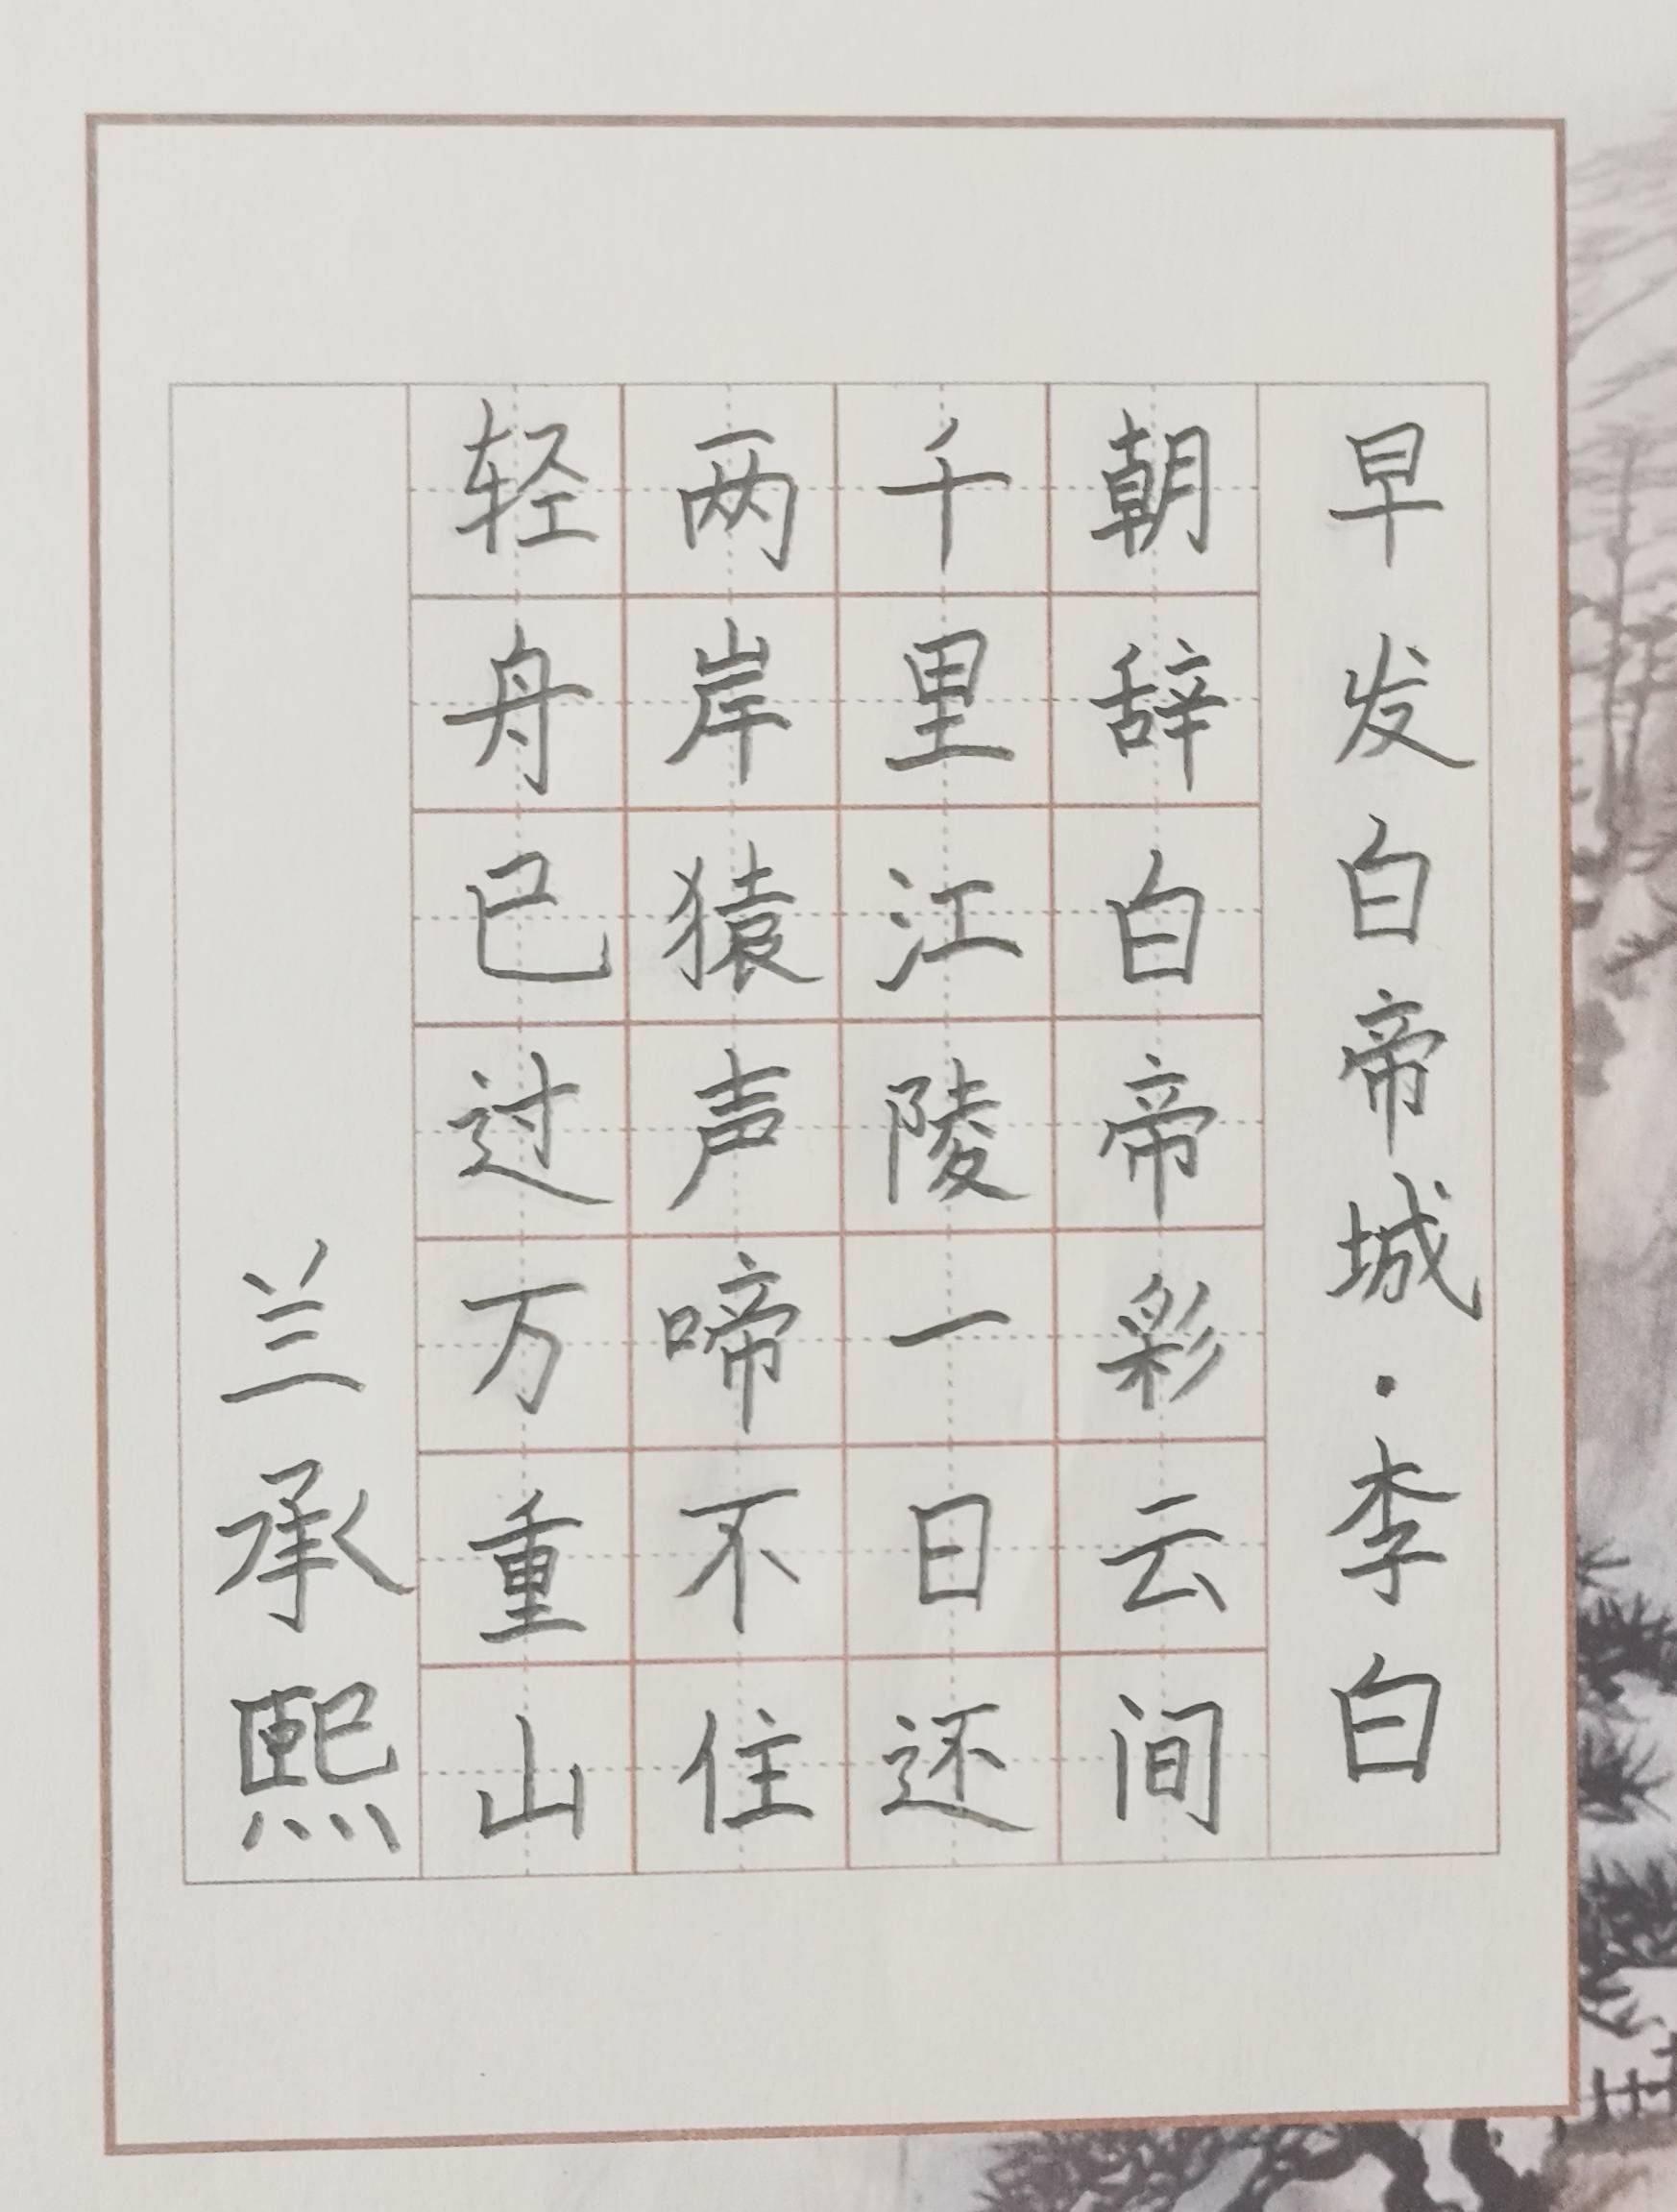 早发白帝城·李白
朝辞白帝彩云间
千里江陵一日还
两岸猿声啼不住
轻舟已过万重山
兰承熙